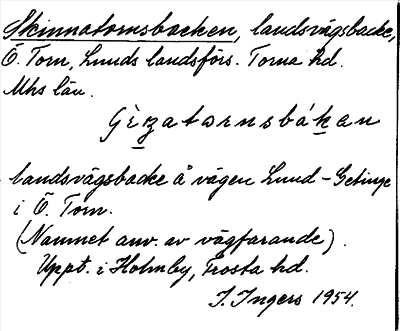 Skinnatornsbacken, landsvägsbacke,
Ö. Torn, Lunds landsförs. Torna hd.
Mhs län.
landsvägsbacke å vägen Lund – Getinge
i Ö. Torn.
(Namnet anv. av vägfarande).
Uppt. i Holmby, Frosta hd.
I. Ingers 1954.